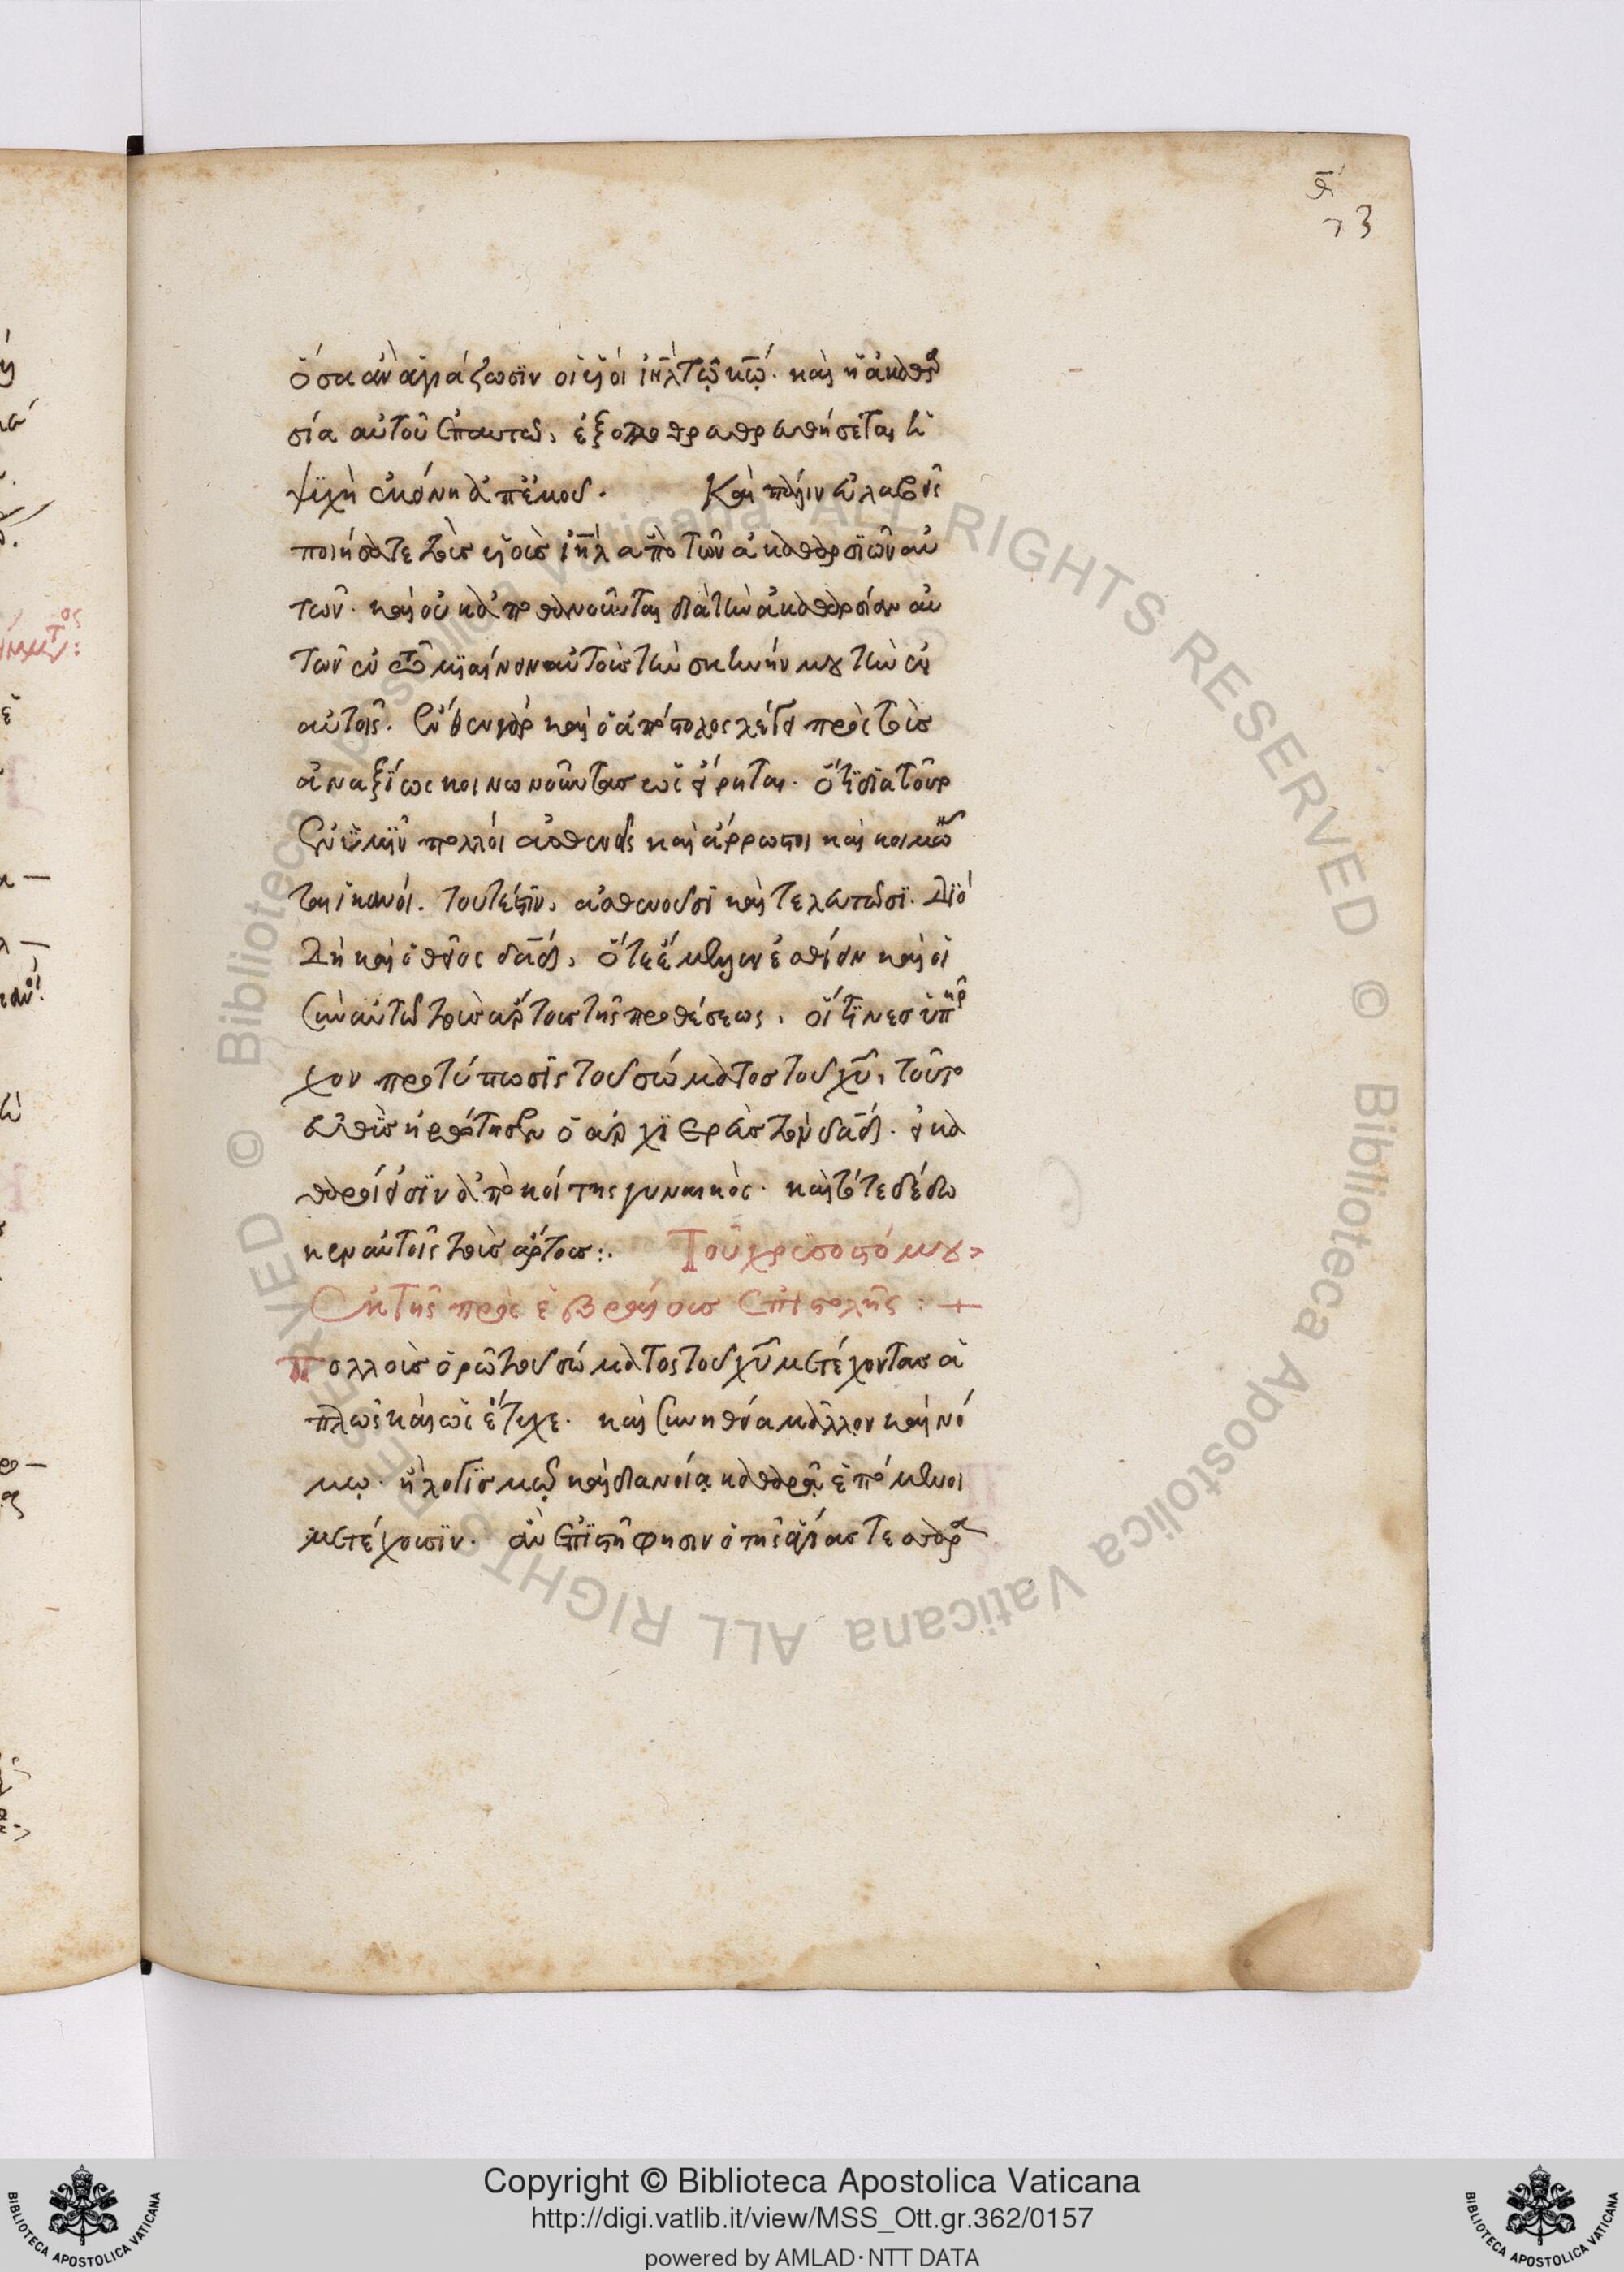 73
ὅσα ἂν ἁγιάζωσϊν οἱ υἱοὶ ιηλ τῷ κῳ. καὶ ἡ ἀκαθαρ
σία αὐτοῦ ἐπ αυτῶ, ἐξολοθρευθήσεται ἡ
ψϋχὴ ἐκείνη ἀπ ἐμοῦ. Καὶ πάλιν εὐλαβεῖς
ποιήσατε τοὺς υἱοὺς ιηλ ἀπὸ τῶν ἀκαθαρσϊῶν αὐ
τῶν. καὶ οὐκ ἀποθανοῦνται διὰ τὴν ἀκαθαρσίαν αὐ
τῶν ἐν τῶ μϊαίνειν αὐτοὺς τὴν σκηνήν μου τὴν ἐν
αὐτοῖς. ἔνθεν γὰρ καὶ ὁ ἀπόστολος λέγει πρὸς τοὺς
ἀναξΐως κοινωνοῦντας ὡς εἴρηται. ὅτϊ δϊα τοῦτο
ἐν ὑμϊν πολλοὶ ἀσθενεῖς καὶ ἄρρωστοι καὶ κοιμῶν
ται ἱκανοί. τουτέστϊν, ἀσθενοῦσϊ καὶ τελευτῶσϊ. Δϊό
Δὴ καὶ ὁ θεῖος δαδ, ὅτε ἔμελλεν ἐσθίειν καὶ οἱ
σὺν αὐτῶ τοὺς ἄρτους τῆς προθέσεως, οἵτϊνες ὑπῆρ
χον προτύπωσϊς τοῦ σώματος τοῦ χυ, τοῦτο
εὐθὺς ἠρώτησεν ὁ ἀρχϊερεὺς τὸν δαδ. εἰ κα
θαροί εἰσϊν ἀπὸ κοίτης γυναικός. καὶ τότε δέδω
κεν αὐτοῖς τοὺς ἄρτους:. Τοῦ χρϋσοστόμου,
Ἐκ τῆς πρὸς ἑβραίους ἐπιστολῆς: +
Πολλοὺς ὁρῶ τοῦ σώματος τοῦ χυ μετέχοντας ἁ
πλῶς καὶ ὡς ἔτυχε. καὶ συνηθεία μᾶλλον καὶ νό
μῳ. ἢ λογϊσμῷ καὶ διανοίᾳ καθαρᾷ ἑπόμενοι
μετέχουσϊν. ἂν ἐπϊστῆ φησιν ὁ τῆς ἁγίας τεσσαρα